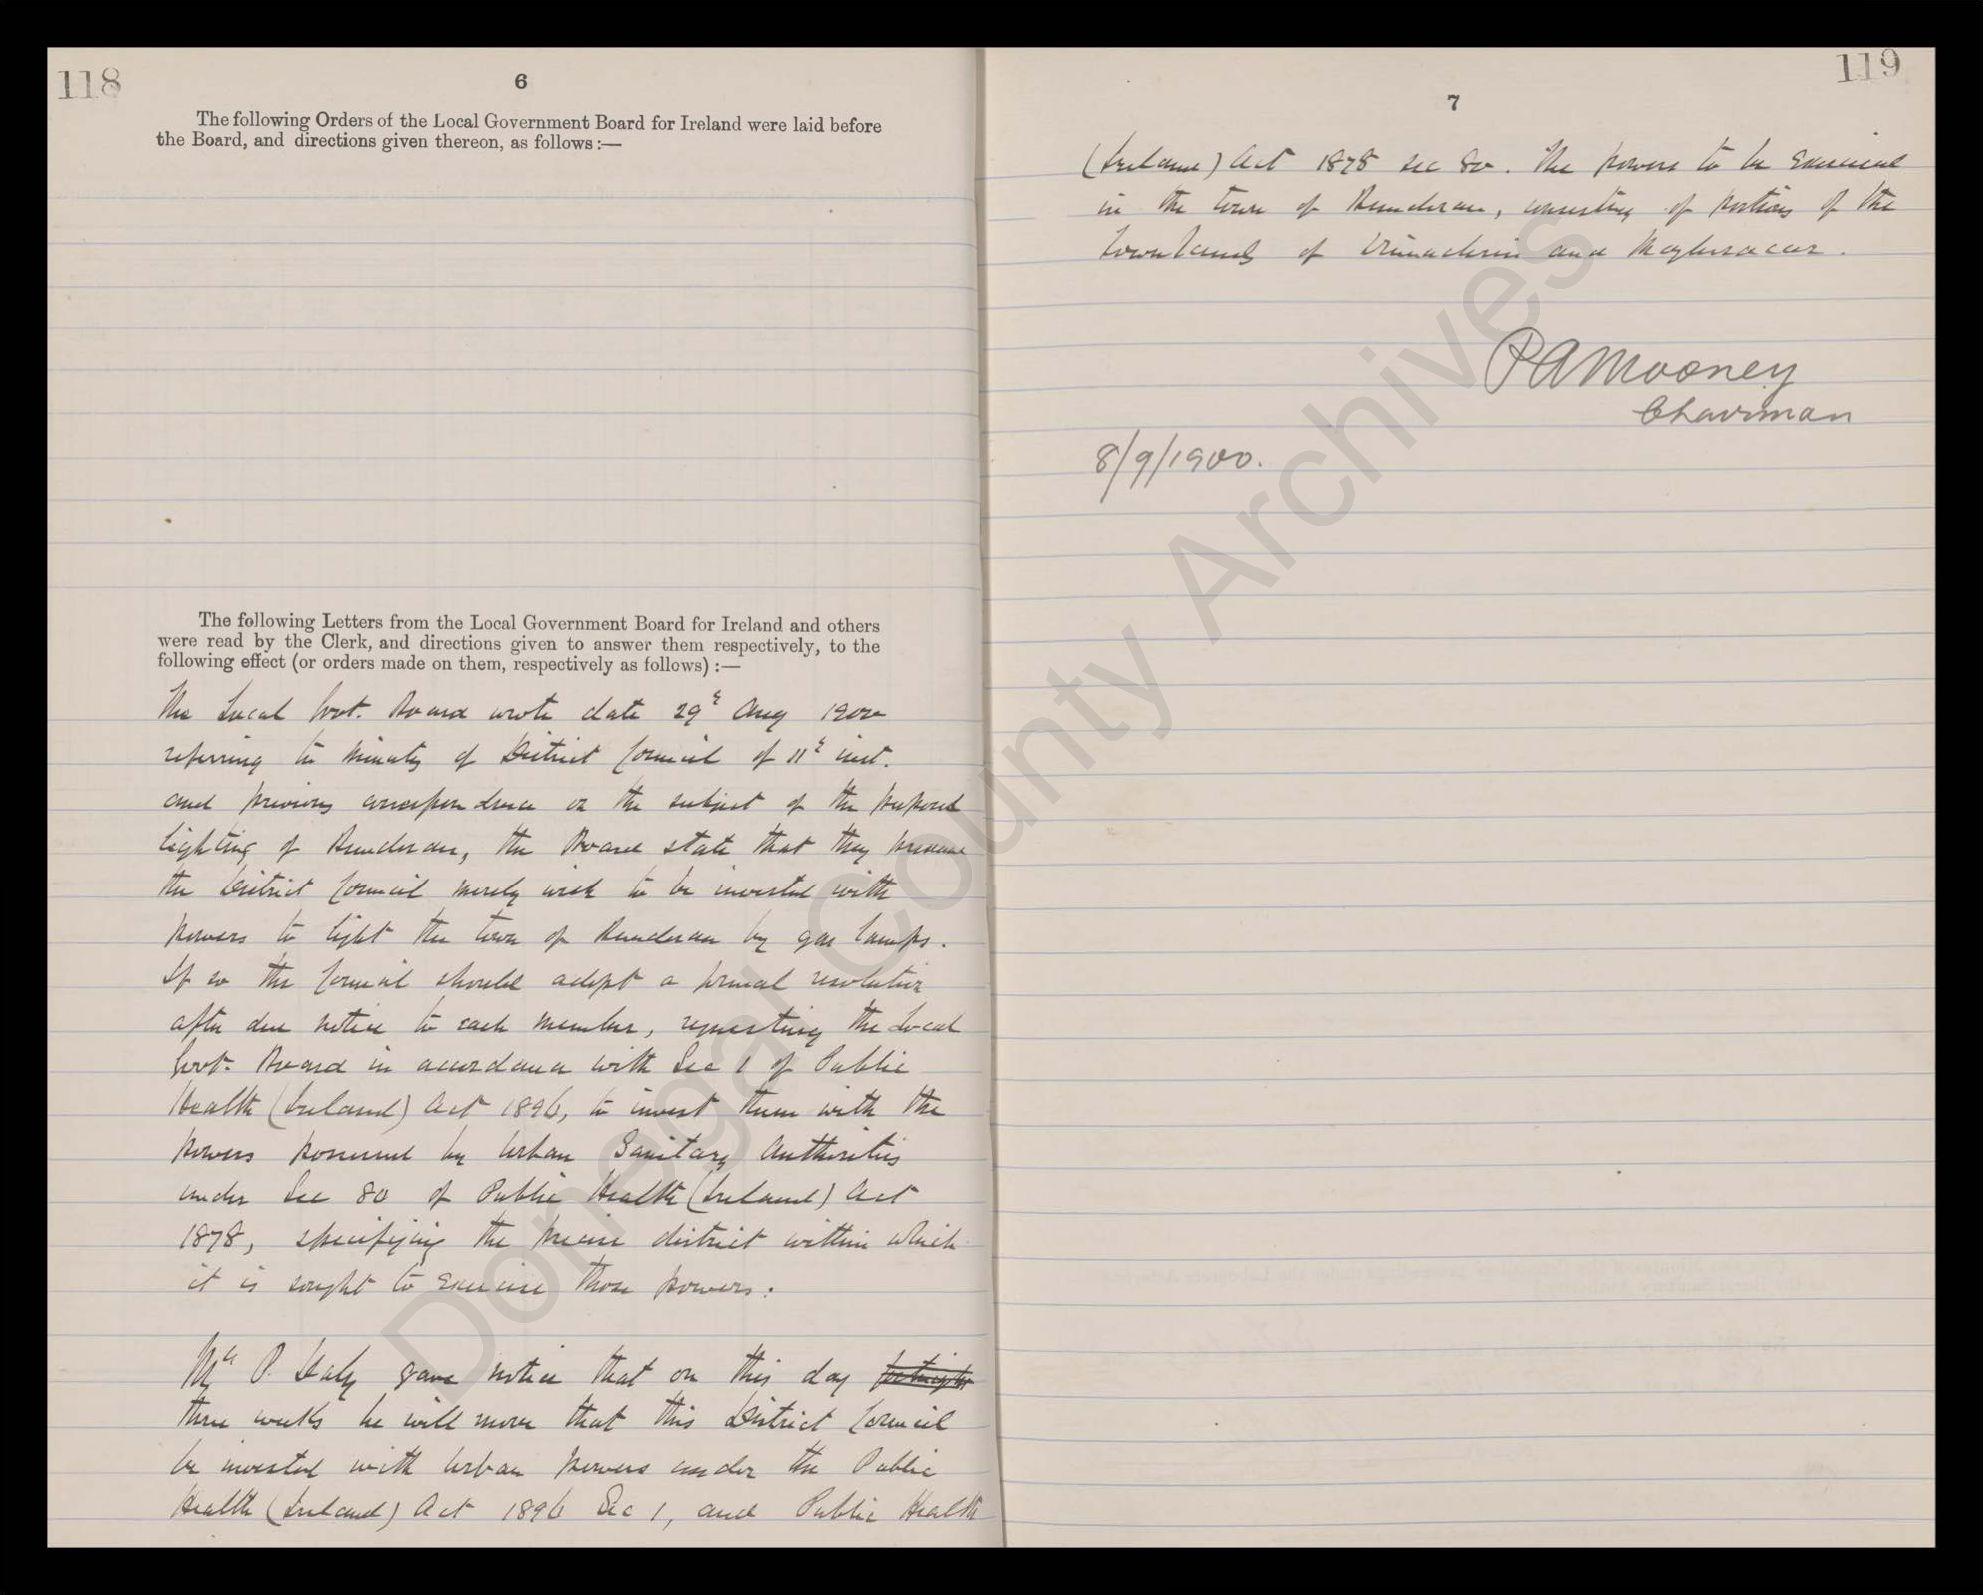 118
6
The following Orders of the Local Government Board for Ireland were laid before
the Board, and directions given thereon, as follows :—
The following Letters from the Local Government Board for Ireland and others
were read by the Clerk, and directions given to answer them respectively, to the
following effect (or orders made on them, respectively as follows) :—
The Local Govt. Board wrote date 29th Aug 1900
referring to minutes of District Council of 11th inst.
and previous correspondence on the subject of the proposed
lighting of Bundoran, the Board state that they presume
the District Council merely wish to be invested with
powers to light the town of Bundoran by gas lamps.
If so the Council should adopt a formal resolution
after due notice to each member, requesting the Local
Govt. Board in accordance with Sec 1 of Public
Health (Ireland) Act 1896, to invest them with the
powers possessed by Urban Sanitary Authorities
under Sec 80 of Public Health (Ireland) Act
1878, specifying the precise district within which
it is sought to exercise those powers.
Mr P. Daly gave notice that on this day fortnight
three weeks he will move that this District Council
be invested with Urban powers under the Public
Health (Ireland) Act 1896 Sec 1, and Public Health
119
7
(Ireland) Act 1878 sec 80. The powers to be exercised
in the town of Bundoran, consisting of portions of the
townlands of Drumacrin and Magheracar.
P A Mooney
Chairman
8/9/1900.
Donegal County Archives